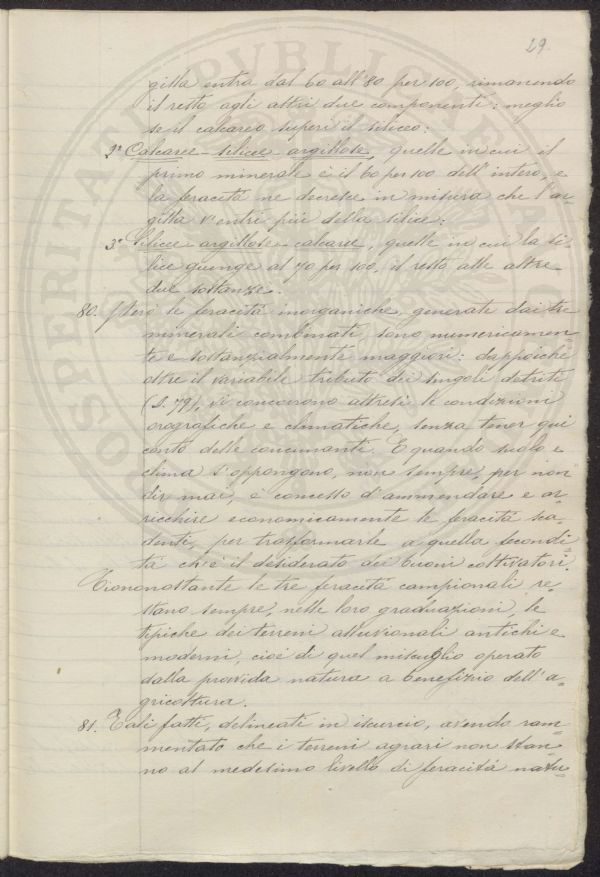 29.
gilla entra dal 60 all'80 per 100, rimanendo
il resto agli altri due componenti: meglio
se il calcareo superi il siliceo:
2º Calcaree-silicee argillose, quelle in cui il
primo minerale è il 60 per 100 dell'intero, e
la feracità ne decresce in misura che l'ar
gilla v'entri più della silice:
3º Silicee argillose-calcaree, quelle in cui la si=
lice giunge al 70 per 100, il resto alle altre
due sostanze.
80. Però le feracità inorganiche, generate dai tre
minerali combinati, sono numericamen=
te e sostanzialmente maggiori: dappoichè
oltre il variabile tributo dei singoli detriti
(S. 79), vi concorrono altresì le condizioni
orografiche e climatiche, senza tener qui
conto delle concimanti. E quando suolo e
clima s'oppongono, non sempre, per non
dir mai, è concesso d'ammendare e ar
ricchire economicamente le feracità sca=
denti, per trasformarle a quella fecondi=
tà ch'è il desiderato dei buoni coltivatori.
Ciononostante le tre feracità campionali re=
stano sempre, nelle loro graduazioni, le
tipiche dei terreni alluvionali antichi e
moderni, cioè di quel miscuglio operato
dalla provvida natura a benefizio dell'a=
gricoltura.
81. Tali fatti, delineati in iscorcio, avendo ram=
mentato che i terreni agrari non stan=
no al medesimo livello di feracità natu=
PROSPERITATI PVBLICAE